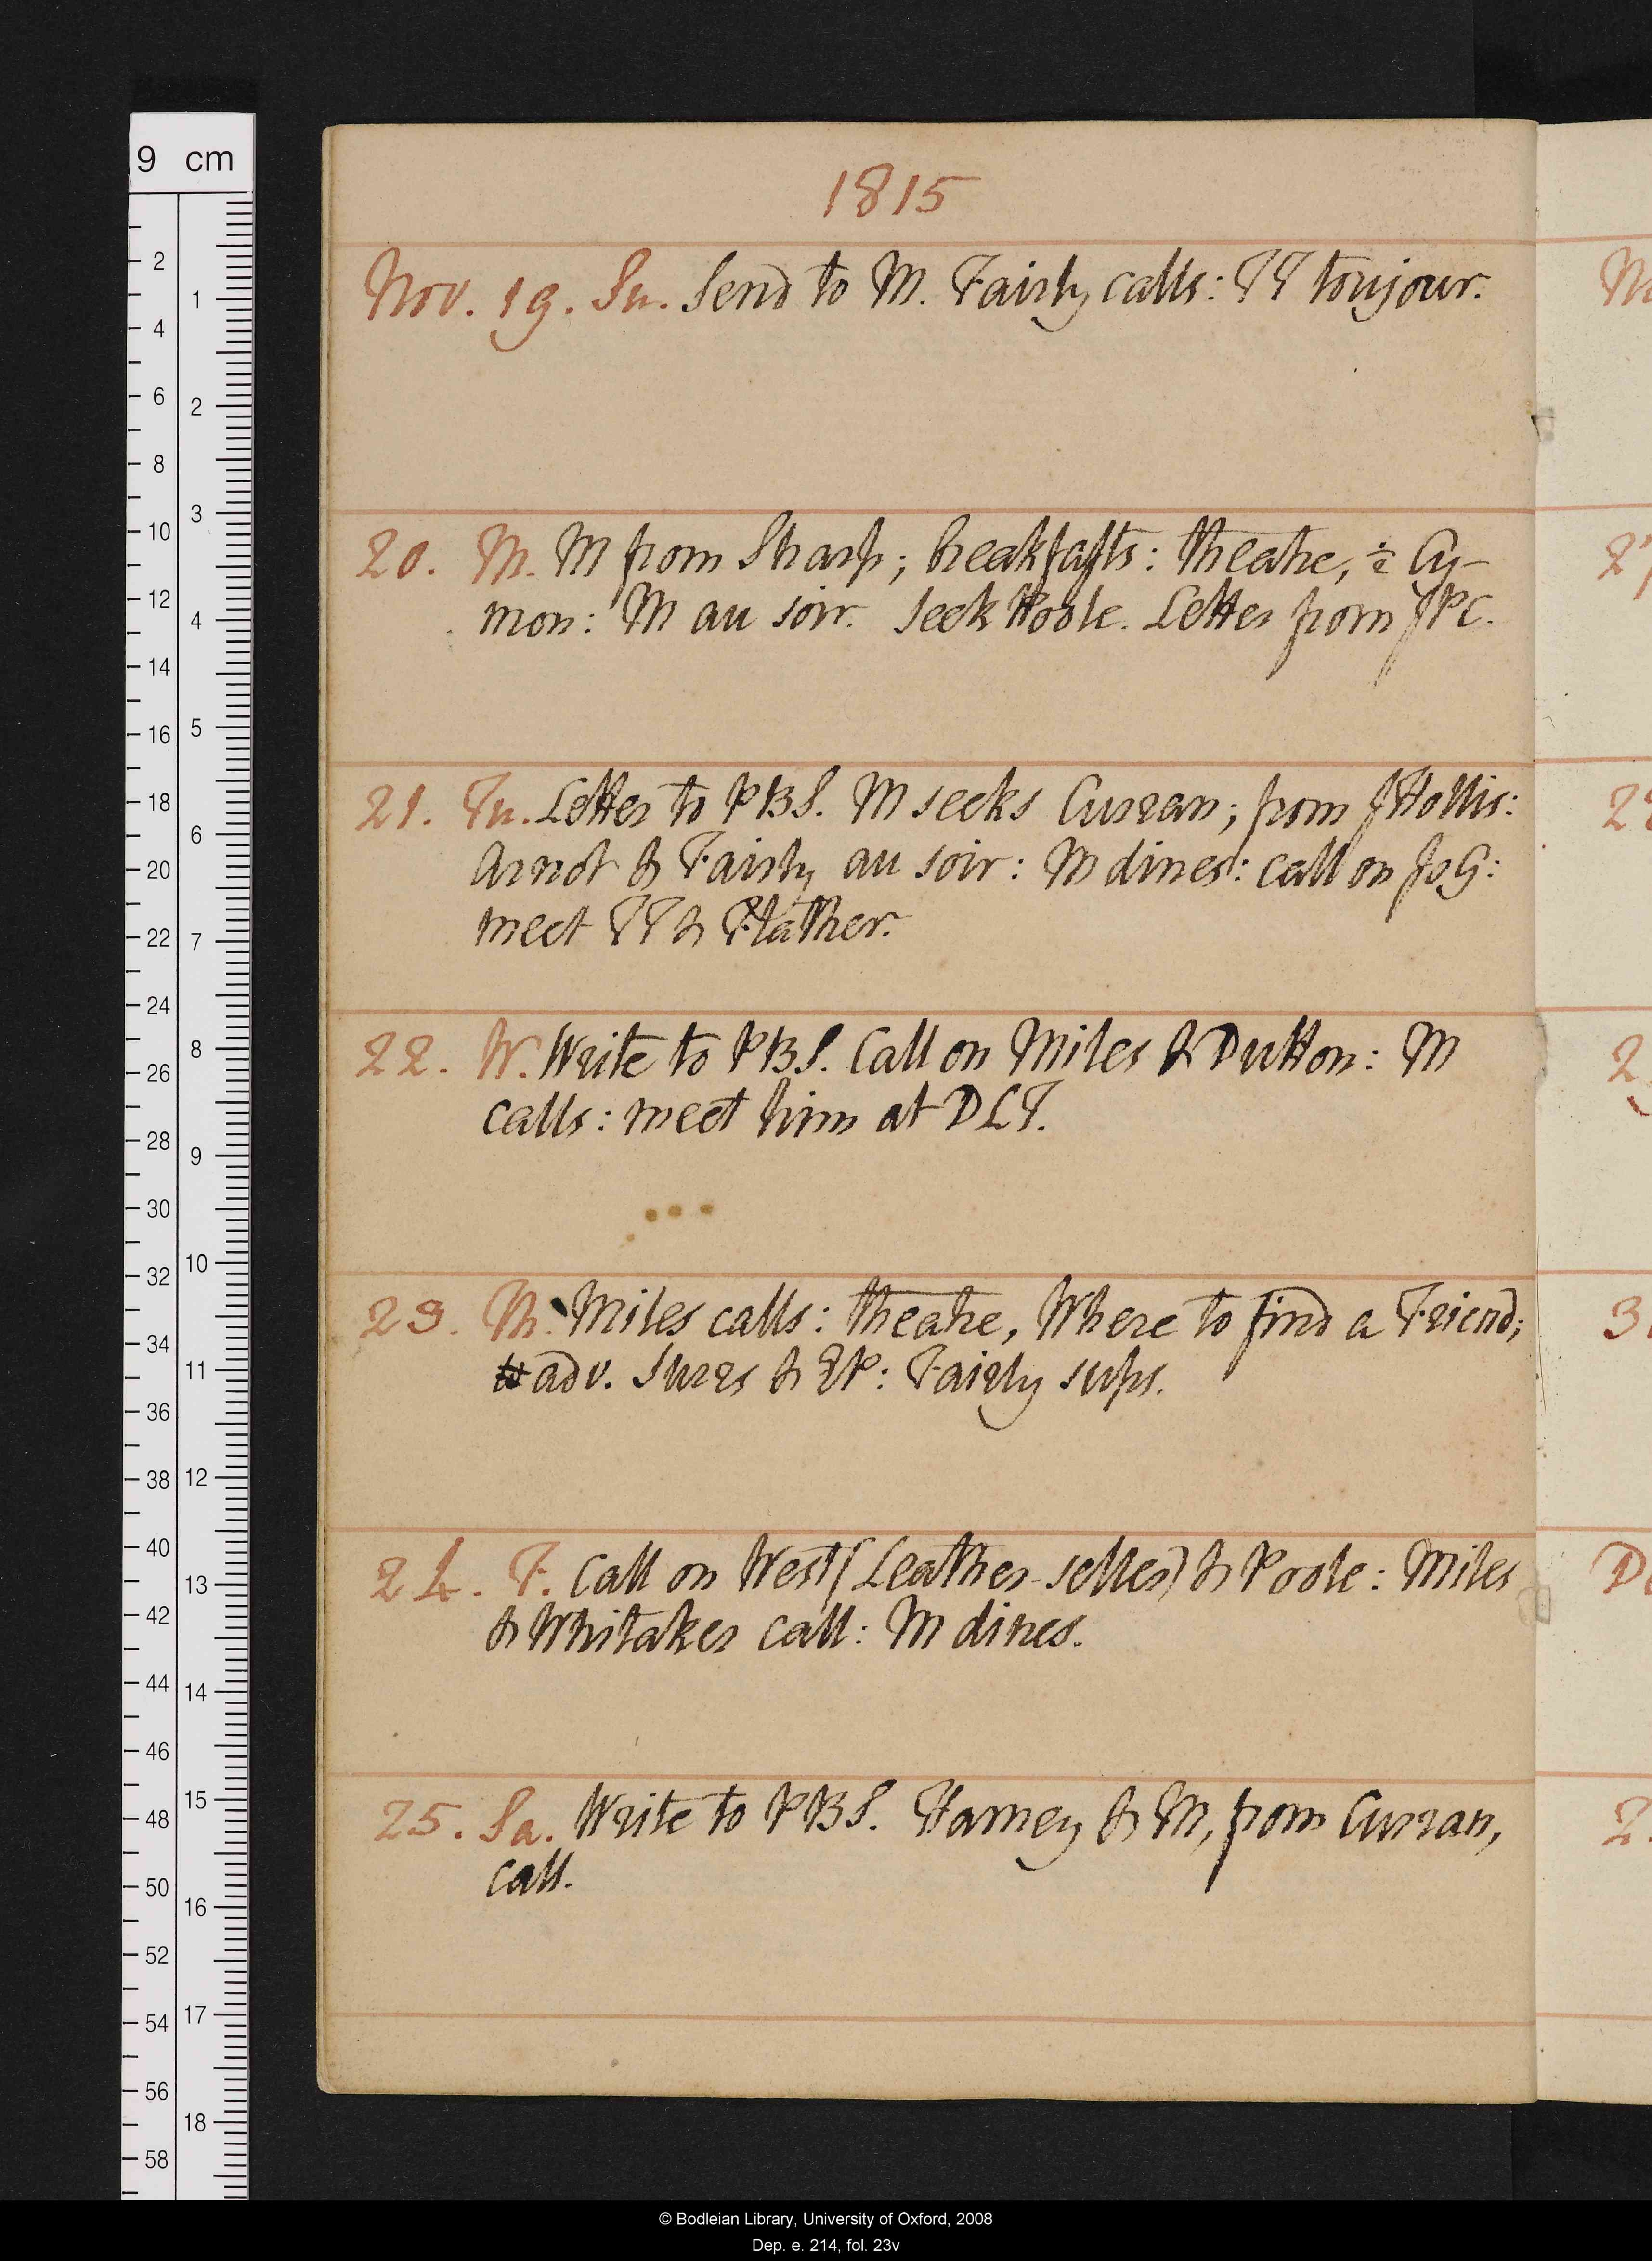 9 cm
1815
Nov. 19. Su. Send to M. Fairly calls: TT toujour.
20. M. M from Sharp; breakfasts: theatre, ½ Cy-
mon: M au soir. Seek Poole. Letter from JPC.
21. Tu. Letter to PBS. M seeks Curran; from JHollis:
Arnot & Fairly au soir: M dines: call on JoG:
meet TT & Flather.
22. W. Write to PBS. Call on Miles & Dutton: M
calls: meet him at DLT.
23. Th. Miles calls: theatre, Where to find a Friend;
adv. Surrs & EP: Fairly sups.
24. F. Call on West (Leather-seller) & Poole: Miles
& Whitaker call: M dines.
25. Sa. Write to PBS. Hamey & M, from Curran,
call.
© Bodleian Library, University of Oxford, 2008
Dep. e. 214, fol. 23v